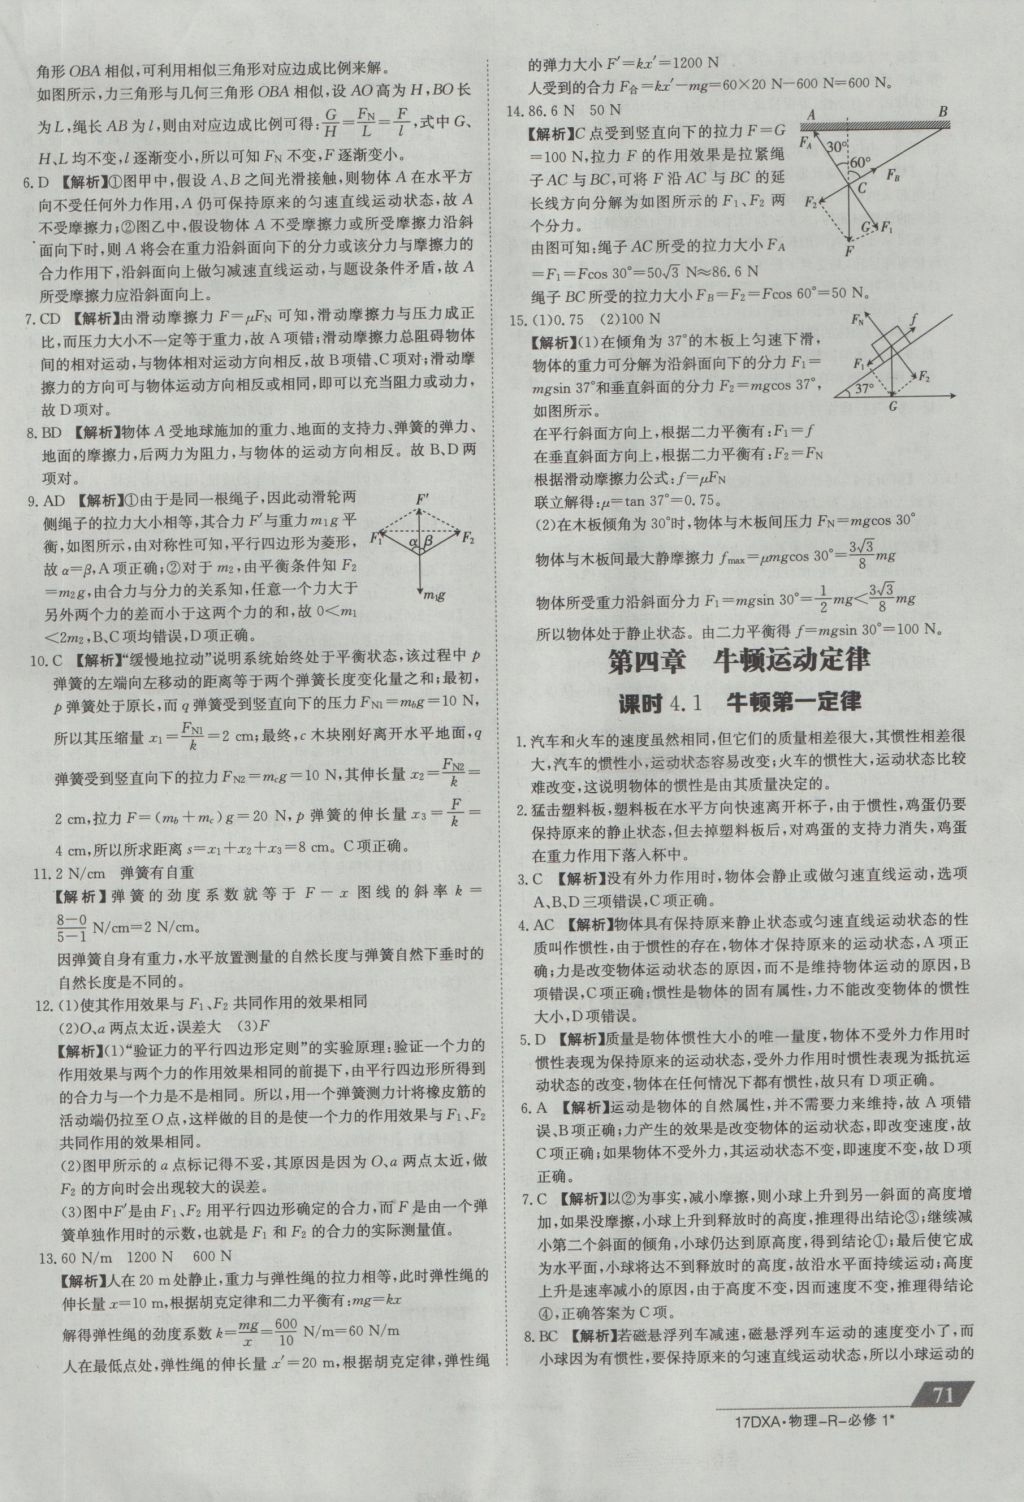 角形 OBA 相似,可利用相似三角形对应边成比例来解。
如图所示,力三角形与几何三角形 OBA 相似,设 AO 高为 H,BO 长
为 L,绳长 AB 为 l,则由对应边成比例可得:G/H=FN/L=F/l,式中 G、
H、L 均不变,l 逐渐变小,所以可知 FN 不变,F 逐渐变小。
6. D 【解析】①图甲中,假设 A、B 之间光滑接触,则物体 A 在水平方
向不受任何外力作用,A 仍可保持原来的匀速直线运动状态,故 A
不受摩擦力;②图乙中,假设物体 A 不受摩擦力或所受摩擦力沿斜
面向下时,则 A 将会在重力沿斜面向下的分力或该分力与摩擦力的
合力作用下,沿斜面向上做匀减速直线运动,与题设条件矛盾,故 A
所受摩擦力应沿斜面向上。
7. CD 【解析】由滑动摩擦力 F=μFN 可知,滑动摩擦力与压力成正
比,而压力大小不一定等于重力,故 A 项错;滑动摩擦力总阻碍物体
间的相对运动,与物体相对运动方向相反,故 B 项错、C 项对;滑动摩
擦力的方向可与物体运动方向相反或相同,即可以充当阻力或动力,
故 D 项对。
8. BD 【解析】物体 A 受地球施加的重力、地面的支持力、弹簧的弹力、
地面的摩擦力,后两力为阻力,与物体的运动方向相反。故 B、D 两
项对。
9. AD 【解析】①由于是同一根绳子,因此动滑轮两
侧绳子的拉力大小相等,其合力 F′与重力 m₁g 平
衡,如图所示,由对称性可知,平行四边形为菱形,
故 α=β,A 项正确;②对于 m₂,由平衡条件知 F₂
=m₂g,由合力与分力的关系知,任意一个力大于
另外两个力的差而小于这两个力的和,故 0<m₁
<2m₂,B、C 项均错误,D 项正确。
F′
F₁ α β F₂
m₁g
10. C 【解析】“缓慢地拉动”说明系统始终处于平衡状态,该过程中 p
弹簧的左端向左移动的距离等于两个弹簧长度变化量之和;最初,
p 弹簧处于原长,而 q 弹簧受到竖直向下的压力 FN1=mbg=10 N,
所以其压缩量 x₁=FN1/k=2 cm;最终,c 木块刚好离开水平地面,q
弹簧受到竖直向下的拉力 FN2=mcg=10 N,其伸长量 x₂=FN2/k=
2 cm,拉力 F=(mb+mc)g=20 N,p 弹簧的伸长量 x₃=F/k=
4 cm,所以所求距离 s=x₁+x₂+x₃=8 cm。C 项正确。
11. 2 N/cm 弹簧有自重
【解析】弹簧的劲度系数就等于 F－x 图线的斜率 k=
(8-0)/(5-1) N/cm=2 N/cm。
因弹簧自身有重力,水平放置测量的自然长度与弹簧自然下垂时的
自然长度是不同的。
12. (1)使其作用效果与 F₁、F₂ 共同作用的效果相同
(2)O、a 两点太近,误差大 (3)F
【解析】(1)“验证力的平行四边形定则”的实验原理:验证一个力的
作用效果与两个力的作用效果相同的前提下,由平行四边形所得到
的合力与一个力是不是相同。所以,用一个弹簧测力计将橡皮筋的
活动端仍拉至 O 点,这样做的目的是使一个力的作用效果与 F₁、F₂
共同作用的效果相同。
(2)图甲所示的 a 点标记得不妥,其原因是因为 O、a 两点太近,做
F₂ 的方向时会出现较大的误差。
(3)图中F′是由 F₁、F₂ 用平行四边形确定的合力,而 F 是由一个弹
簧单独作用时的示数,也就是 F₁ 和 F₂ 的合力的实际测量值。
13. 60 N/m 1200 N 600 N
【解析】人在 20 m 处静止,重力与弹性绳的拉力相等,此时弹性绳的
伸长量 x=10 m,根据胡克定律和二力平衡有:mg=kx
解得弹性绳的劲度系数 k=mg/x=600/10 N/m=60 N/m
人在最低点处,弹性绳的伸长量 x′=20 m,根据胡克定律,弹性绳
的弹力大小 F′=kx′=1200 N
人受到的合力 F合=kx′－mg=60×20 N－600 N=600 N。
14. 86.6 N 50 N
【解析】C 点受到竖直向下的拉力 F=G
=100 N,拉力 F 的作用效果是拉紧绳
子 AC 与 BC,可将 F 沿 AC 与 BC 的延
长线方向分解为如图所示的 F₁、F₂ 两
个分力。
由图可知:绳子 AC 所受的拉力大小 FA
=F₁=Fcos 30°=50√3 N≈86.6 N
绳子 BC 所受的拉力大小 FB=F₂=Fcos 60°=50 N。
A B
FA 30°
60° FB
C
F₂
G F₁
F
15. (1)0.75 (2)100 N
【解析】(1)在倾角为 37°的木板上匀速下滑,
物体的重力可分解为沿斜面向下的分力 F₁=
mgsin 37°和垂直斜面的分力 F₂=mgcos 37°,
如图所示。
在平行斜面方向上,根据二力平衡有:F₁=f
在垂直斜面方向上,根据二力平衡有:F₂=FN
根据滑动摩擦力公式:f=μFN
联立解得:μ=tan 37°=0.75。
(2)在木板倾角为 30°时,物体与木板间压力 FN=mgcos 30°
物体与木板间最大静摩擦力 fmax=μmgcos 30°=3√3/8 mg
物体所受重力沿斜面分力 F₁=mgsin 30°=1/2 mg<3√3/8 mg
所以物体处于静止状态。由二力平衡得 f=mgsin 30°=100 N。
FN f
F₁ F₂
37°
G
第四章 牛顿运动定律
课时 4.1 牛顿第一定律
1. 汽车和火车的速度虽然相同,但它们的质量相差很大,其惯性相差很
大,汽车的惯性小,运动状态容易改变;火车的惯性大,运动状态比较
难改变,这说明物体的惯性是由其质量决定的。
2. 猛击塑料板,塑料板在水平方向快速离开杯子,由于惯性,鸡蛋仍要
保持原来的静止状态,但去掉塑料板后,对鸡蛋的支持力消失,鸡蛋
在重力作用下落入杯中。
3. C 【解析】没有外力作用时,物体会静止或做匀速直线运动,选项
A、B、D 三项错误,C 项正确。
4. AC 【解析】物体具有保持原来静止状态或匀速直线运动状态的性
质叫作惯性,由于惯性的存在,物体才保持原来的运动状态,A 项正
确;力是改变物体运动状态的原因,而不是维持物体运动的原因,B
项错误,C 项正确;惯性是物体的固有属性,力不能改变物体的惯性
大小,D 项错误。
5. D 【解析】质量是物体惯性大小的唯一量度,物体不受外力作用时
惯性表现为保持原来的运动状态,受外力作用时惯性表现为抵抗运
动状态的改变,物体在任何情况下都有惯性,故只有 D 项正确。
6. A 【解析】运动是物体的自然属性,并不需要力来维持,故 A 项错
误、B 项正确;力产生的效果是改变物体的运动状态,即改变速度,故
C 项正确;如果物体不受外力,其运动状态不变,即速度不变,故 D 项
正确。
7. C 【解析】以②为事实,减小摩擦,则小球上升到另一斜面的高度增
加,如果没摩擦,小球上升到释放时的高度,推理得出结论③;继续减
小第二个斜面的倾角,小球仍达到原高度,得到结论①;最后使它成
为水平面,小球将达不到释放时的高度,故沿水平面持续运动;高度
上升是速率减小的原因,由于高度不变,因而速度不变,推理得结论
④,正确答案为 C 项。
8. BC 【解析】若磁悬浮列车减速,磁悬浮列车运动的速度变小了,而
小球因为有惯性,要保持原来的匀速直线运动状态,所以小球运动的
71
17DXA·物理-R-必修 1*